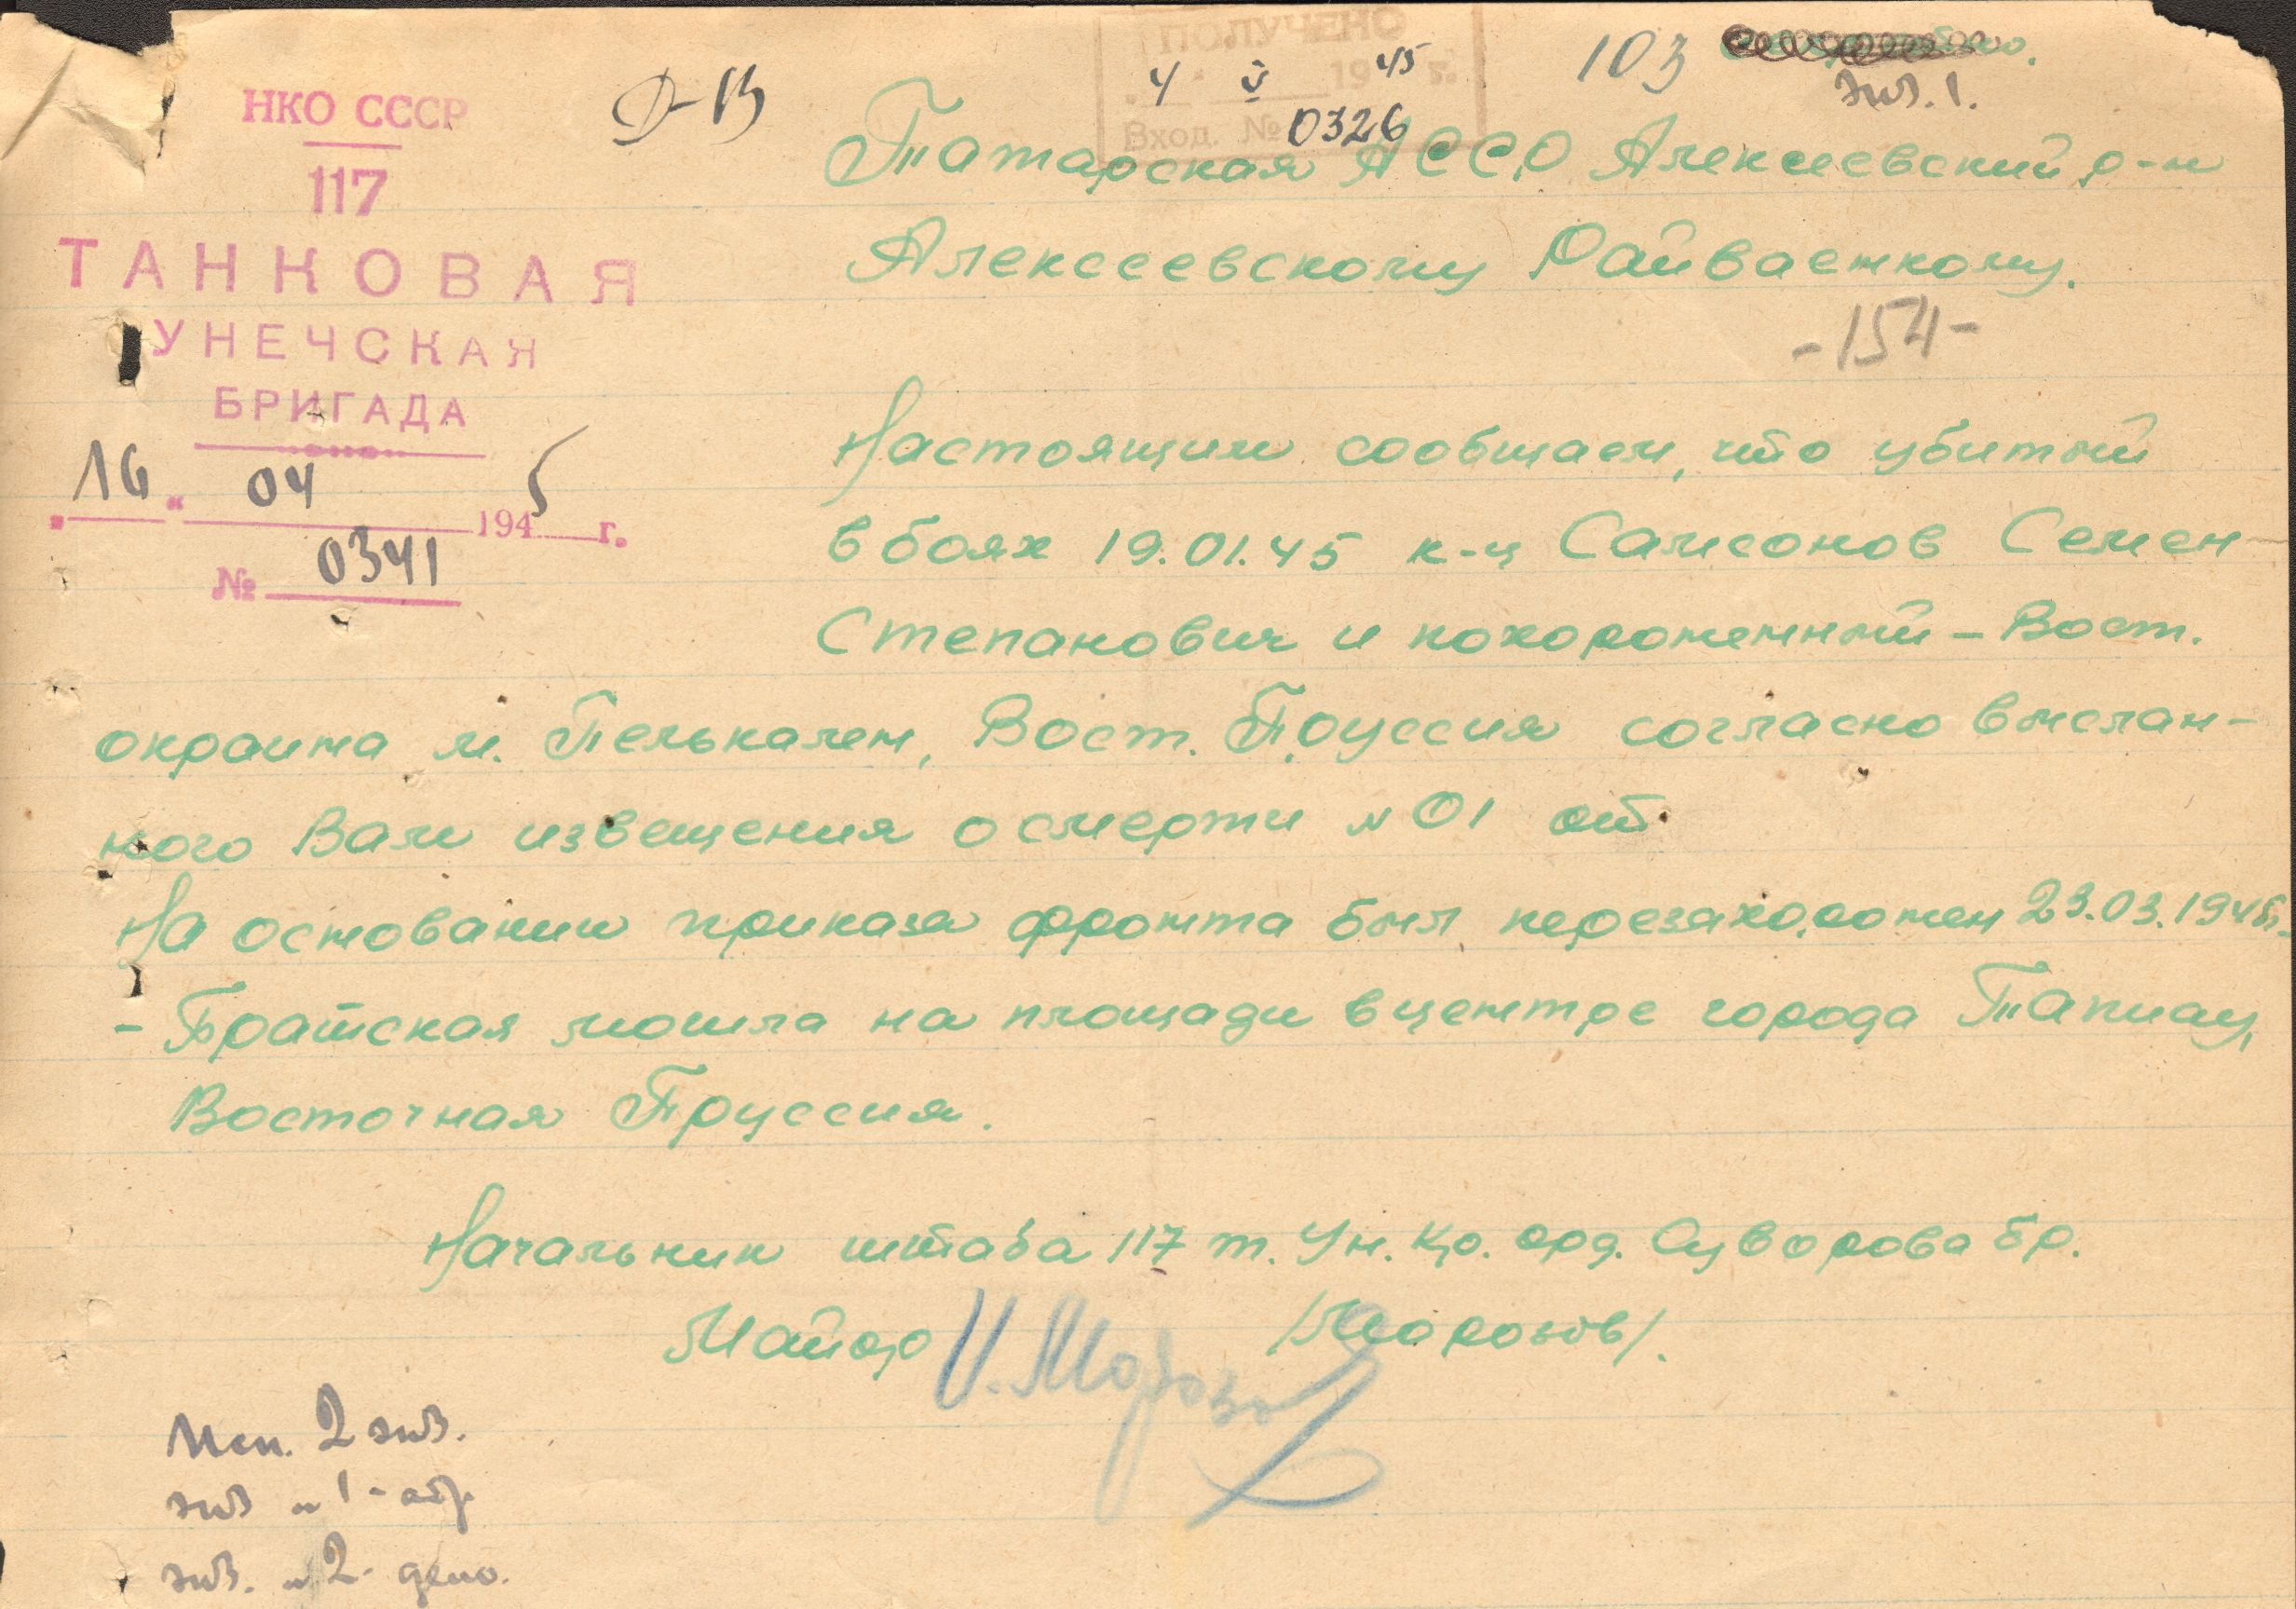 ПОЛУЧЕНО
4 V 1945 г.
Вход. № 0326
103
экз. 1.
Д-В
НКО СССР
117
ТАНКОВАЯ
УНЕЧСКАЯ
БРИГАДА
„16" 04 1945 г.
№ 0341
Татарская АССР Алексеевский р-н
Алексеевскому Райвоенкому.
-154-
Настоящим сообщаем, что убитый
в боях 19.01.45 к-ц Самсонов Семен
Степанович и похороненный – Вост.
окраина м. Пелькален, Вост. Пруссия согласно выслан-
ного Вам извещения о смерти № 01 от
На основании приказа фронта был перезахоронен 23.03.1945г.
- Братская могила на площади в центре города Тапиау,
Восточная Пруссия.
Начальник штаба 117 т. Ун. Кр. орд. Суворова бр.
Майор И. Морозов /Морозов/.
Исп. 2 экз.
экз № 1 - адр.
экз. № 2 - дело.